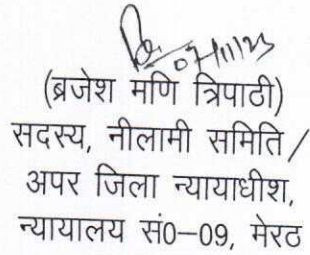 07/11/23
(ब्रजेश मणि त्रिपाठी)
सदस्य, नीलामी समिति /
अपर जिला न्यायाधीश,
न्यायालय सं0–09, मेरठ